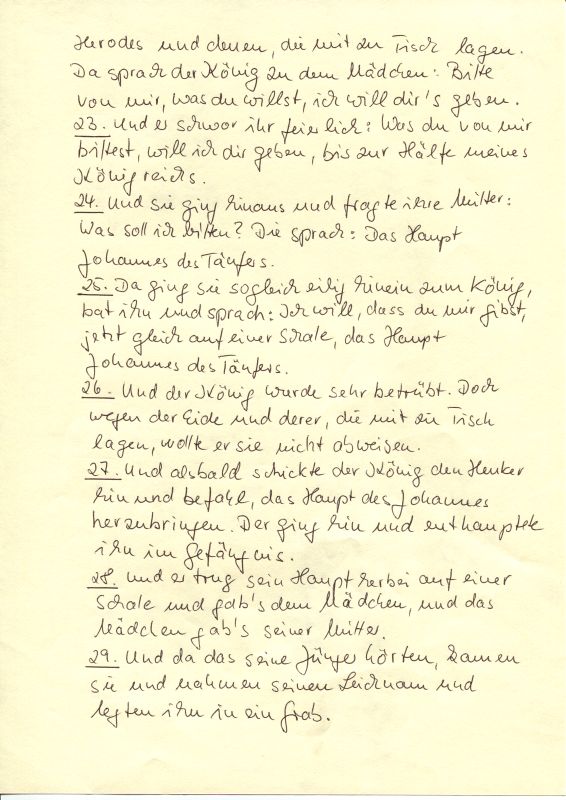 Herodes und denen, die mit zu Tisch lagen.
Da sprach der König zu dem Mädchen: Bitte
von mir, was du willst, ich will dir's geben.
23. Und er schwor ihr feierlich: Was du von mir
bittest, will ich dir geben, bis zur Hälfte meines
Königreichs.
24. Und sie ging hinaus und fragte ihre Mutter:
Was soll ich bitten? Die sprach: Das Haupt
Johannes des Täufers.
25. Da ging sie sogleich eilig hinein zum König,
bat ihn und sprach: Ich will, dass du mir gibst,
jetzt gleich auf einer Schale, das Haupt
Johannes des Täufers.
26. Und der König wurde sehr betrübt. Doch
wegen der Eide und derer, die mit zu Tisch
lagen, wollte er sie nicht abweisen.
27. Und alsbald schickte der König den Henker
hin und befahl, das Haupt des Johannes
herzubringen. Der ging hin und enthauptete
ihn im Gefängnis.
28. Und er trug sein Haupt herbei auf einer
Schale und gab's dem Mädchen, und das
Mädchen gab's seiner Mutter.
29. Und da das seine Jünger hörten, kamen
sie und nahmen seinen Leichnam und
legten ihn in ein Grab.